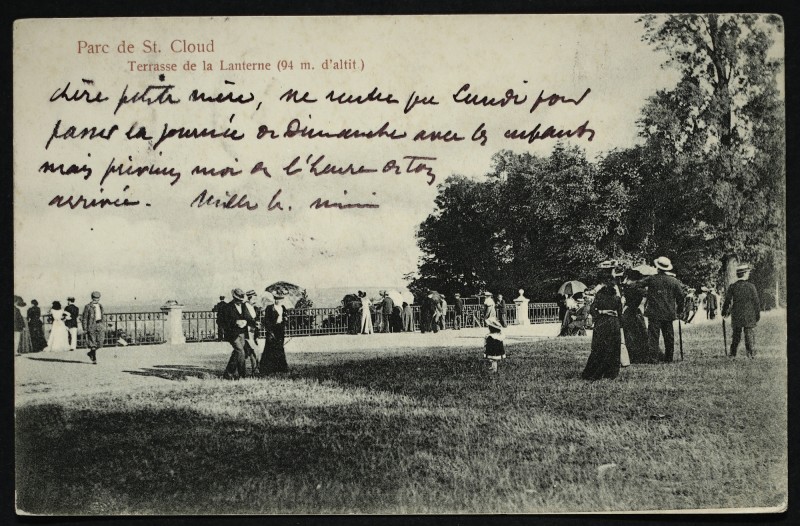 Parc de St. Cloud
Terrasse de la Lanterne (94 m. d'altit.)
chère petite mère, ne rentre que Lundi pour
passer la journée de Dimanche avec les enfants
mais préviens moi de l'heure de ton
arrivée. Mille b. mimi